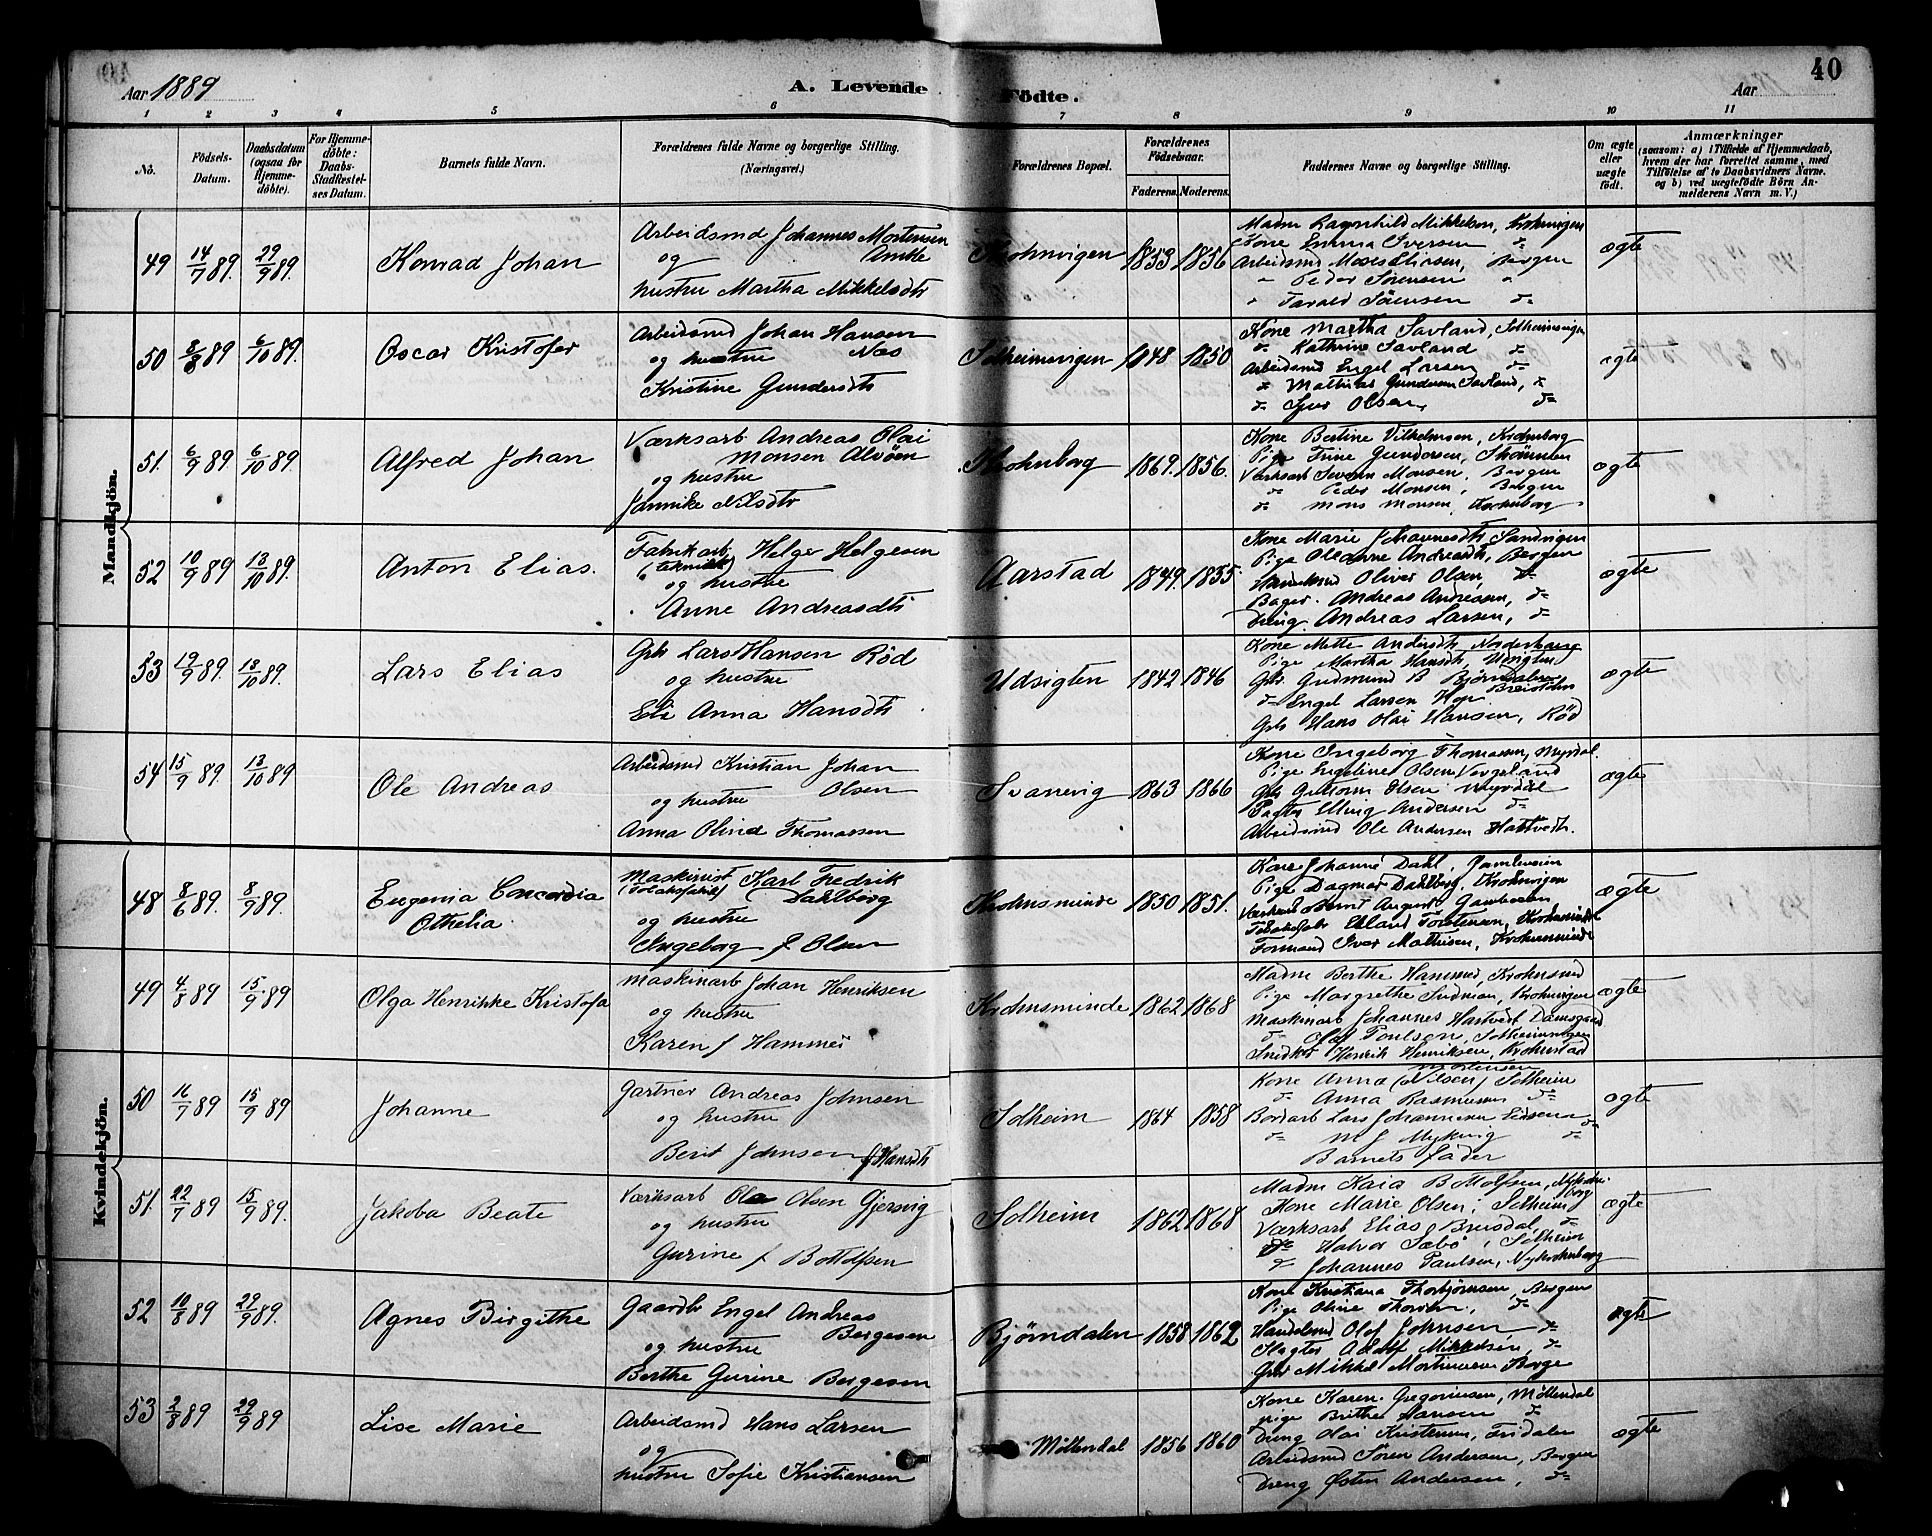 Aar 1889
A. Levende Födte.
Aar
40
1 2 3 4 5 6 7 8 9 10 11
No.
Födsels-Datum.
Daabsdatum (ogsaa for Hjemmedöbte).
For Hjemmedöbte: Daabs-Stadfæstelses Datum.
Barnets fulde Navn.
Forældrenes fulde Navne og borgerlige Stilling. (Næringsvei.)
Forældrenes Bopæl.
Forældrenes Födselsaar.
Faderens. Moderens.
Faddernes Navne og borgerlige Stilling.
Om ægte eller uægte födt.
Anmærkninger
(saasom: a) i Tilfælde af Hjemmedaab, hvem der har forrettet samme, med Tilföielse af to Daabsvidners Navne. og b) ved uægtefödte Börn Anmelderens Navn m. V.)
Mandkjön.
49 14/7 89. 29/9 89. Konrad Johan
Arbeidsmd Johannes Mortensen
og
hustru Martha Mikkelsdtr
Krohnvigen 1853 1856
Madm Ragnhild Mikkelsen, Krohnvigen
Kone Emma Iversen do
Arbeidsmd Moses Eliasen, Bergen
" Peder Sörensen "
" Tarald Sörensen do
ægte
50 8/8 89 6/10 89. Oscar Kristofer
Arbeidsmd Johan Hansen
og hustru Næs
Kristine Gundersdtr
Solheimsvigen 1848 1850
Kone Martha Savland, Solheimsvigen
do Kathrine Savland do
Arbeidsmd Engel Larsen do
do Mathias Gundersen Savland, do
do Sjur Olsen, do
ægte
51. 6/9 89 6/10 89. Alfred Johan
Værksarb Andreas Olai
Monsen Alvöen
og hustru
Jannike Nilsdtr
Krohnborg 1869. 1856.
Kone Bertine Vilhelmsen, Krohnborg
Pige Trine Gundersen,
Værksarb Severin Monsen, Bergen
do Peder Monsen, Bergen
do Mons Monsen, Krohnborg
ægte
52 10/9 89 13/10 89. Anton Elias.
Fabrikarb. Helge Helgesen
og hustru
Anne Andreasdtr
Aarstad 1849. 1855.
Kone Marie Johannesdtr Sandvigen
Pige Oledine Andreasdtr, Bergen
Handelsmd Oliver Olsen, do
Bager. Andreas Andreasen, do
Dreng. Andreas Larsen, do
ægte
53 19/9 89. 13/10 89. Lars Elias
Gbr Lars Hansen Röd
og hustru
Anna Hansdtr
Udsigten 1842 1846
Kone Mette Andersdtr
Pige Martha Hansdtr, Udsigten
Gbr. Gudmund B Bjørndalen
do Engel Larsen Hop
Gbr Hans Olai Hansen, Röd
ægte
54 15/9 89. 13/10 89 Ole Andreas
Arbeidsmd Kristian Johan
Olsen
og hustru
Anna Olina Thomassen
Svanevig 1863 1866
Kone Ingeborg Thomassen, Myrdal.
Pige Engeline Olsen
Gbr Guttorm Olsen Myrdal
Elling Andersen do
Arbeidsmd Ole Andersen Hattvedt.
ægte
Kvindekjön.
48 8/6 89. 8/9 89. Eugenia Concordia
Othelia.
Maskinist Karl Fedrik
(Tobaksfabrik) Dahlberg
og hustru
Ingeborg f Olsen
Krohnsminde 1850 1851.
Kone Johanne Dahl,
Pige Dagmar Dahlberg, Krohnvigen
Bernt August
Tobaksfabr Torstensen, Krohnsminde
Formand Iver Mathisen, Krohnsminde
ægte
49 4/8 89 15/9 89 Olga Henrikke Kristofa
Maskinarb Johan Henriksen
og hustru
Karen f Hammer
Krohnsminde 1862 1868
Madm Berthe Hammer, Krohnsmd
Pige Margrethe, Krohnvigen
Maskinarb Johannes Hartvedt Damsgaard
do Olaf Poulsen, Solheimsvigen
Snedker Henrik Henriksen, Krohnstad
ægte
50 16/7 89 15/9 89 Johanne
Gartner Andreas Johnsen
og hustru
Berit Johnsen f Hansdtr
Solheim 1864 1858
Mortensen
Kone Anna (Nilsen) Solheim
do Anna Rasmussen do
Bordarb Lars Johannesen
do M J Myking do
Barnets fader
ægte
51. 22/7 89 15/9 89. Jakoba Beate
Værksarb Ole Olsen Gjersvig
og hustru
Gurine f Bottolfsen
Solheim 1862 1868
Madm Kaia Bottolfsen,
Kone Marie Olsen, Solheim
Værksarb Elias Breidal, do
do Halvor Sæbö, Solheim
do Johannes Paulsen, Nykrohnborg
ægte
52 10/8 89 29/9 89. Agnes Birgithe
Gaardbr Engel Andreas
Bergesen
og hustru
Berthe Gurine Bergesen
Bjørndalen 1858 1862
Kone Kristiana Thorbjørnsen, Bergen
Pige Oline, do
Handelsmd Olaf Johnsen, do
Slagter Adolf Mikkelsen, do
Gbr Mikkel Mortensen Berge
ægte
53 2/8 89 29/9 89 Lise Marie
Arbeidsmd Hans Larsen
og
hustru Sofie Kristiansen
Möllendal 1856 1860
Kone Karen Gregoriusen, Möllendal
pige Brithe Hansen do
Dreng Olai Kristensen, Fridalen
Arbeidsmd Sören Andersen, Bergen
Dreng Østen Andersen, do
ægte